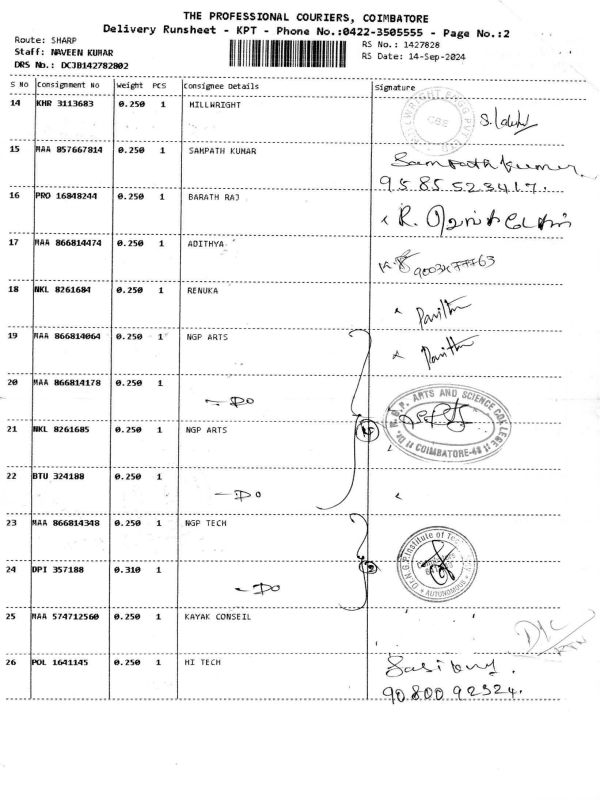 THE PROFESSIONAL COURIERS, COIMBATORE
Delivery Runsheet - KPT - Phone No.:0422-3505555 - Page No.:2
Route: SHARP
RS No.: 1427828
Staff: NAVEEN KUMAR
RS Date: 14-Sep-2024
DRS No.: DCJB142782802
S No Consignment No Weight PCS Consignee Details Signature
14 KHR 3113683 0.250 1 MILLWRIGHT
15 MAA 857667814 0.250 1 SAMPATH KUMAR Sampath Kumar
9585523417.
16 PRO 16848244 0.250 1 BARATH RAJ
17 MAA 866814474 0.250 1 ADITHYA
18 NKL 8261684 0.250 1 RENUKA Pavithra
19 MAA 866814064 0.250 1 NGP ARTS Pavithra
20 MAA 866814178 0.250 1
— DO
Dr. N.G.P. ARTS AND SCIENCE COLLEGE
COIMBATORE-48
21 NKL 8261685 0.250 1 NGP ARTS
22 BTU 324188 0.250 1
— DO
23 MAA 866814348 0.250 1 NGP TECH
24 DPI 357188 0.310 1
— DO
AUTONOMOUS
25 MAA 574712560 0.250 1 KAYAK CONSEIL
D/C
RTN
26 POL 1641145 0.250 1 HI TECH
9080092324.